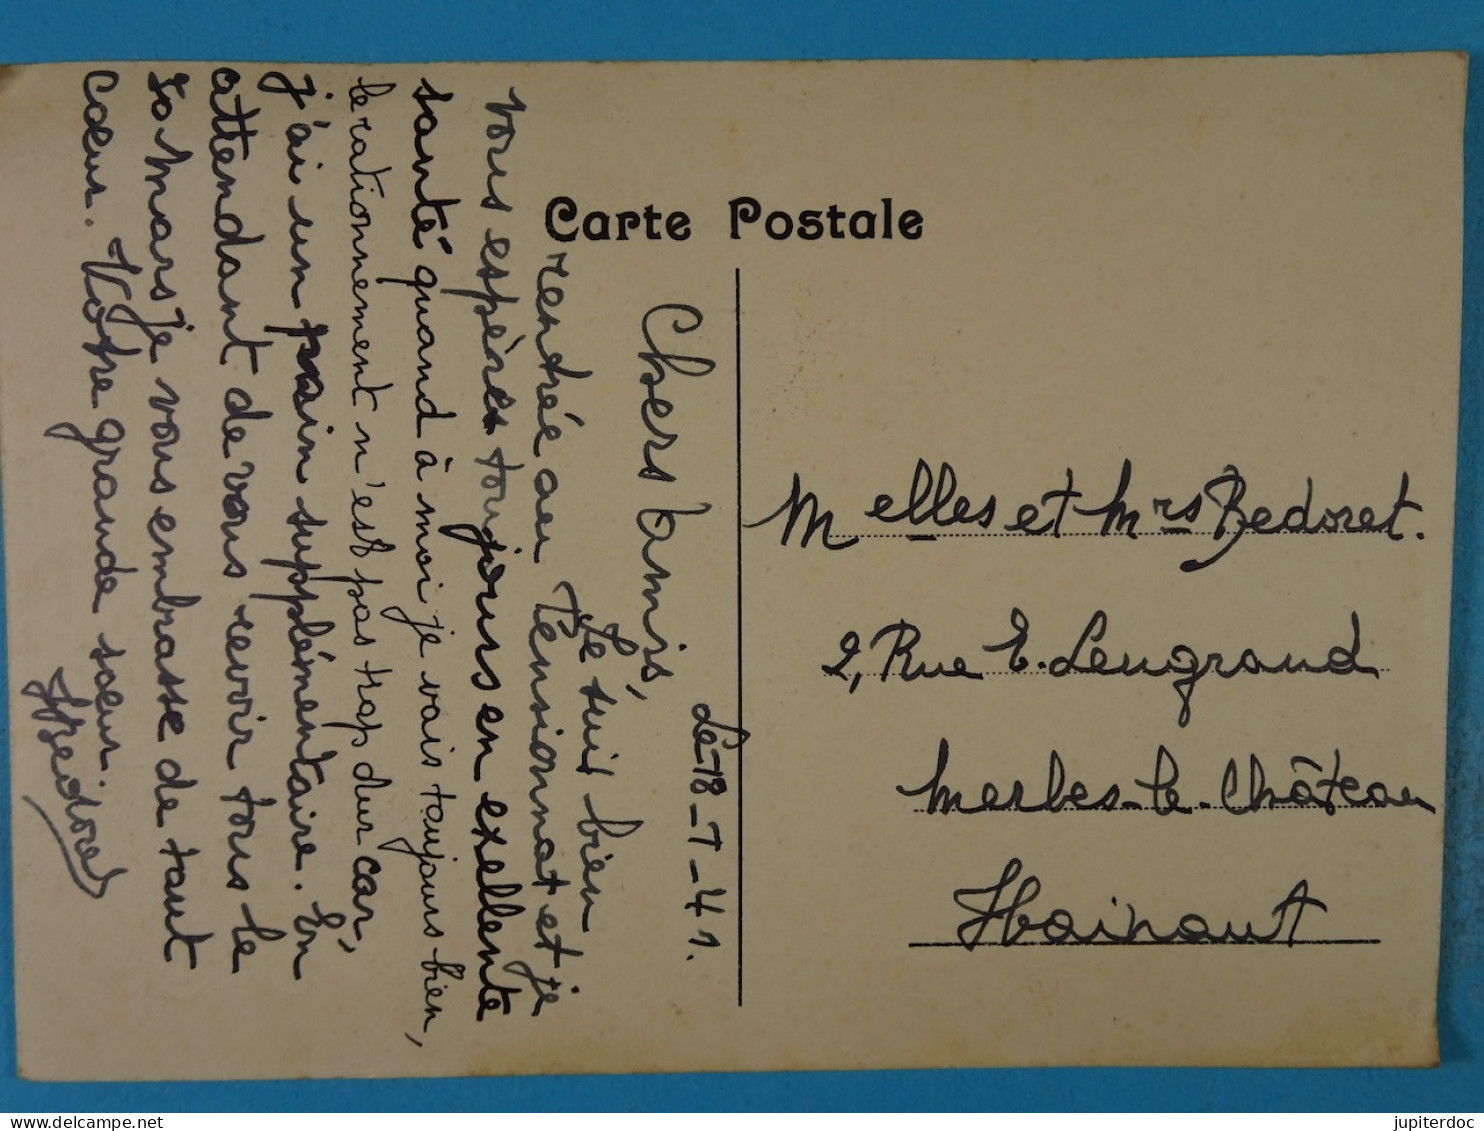 Carte Postale
Le 18-1-41.
Chers amis,
Je suis bien
rentrée au Pensionnat et je
vous espères toujours en exellente
santé quand à moi je vais toujours bien,
le rationnement n'est pas trop dur car,
j'ai un pain supplémentaire. En
attendant de vous revoir tous le
30 Mars je vous embrasse de tout
cœur. Votre grande sœur.
Bedoret
Melles et Mrs Bedoret.
2, Rue E. Leugrand
Merbes-le-Château
Hainaut
jupiterdoc
delcampe.net